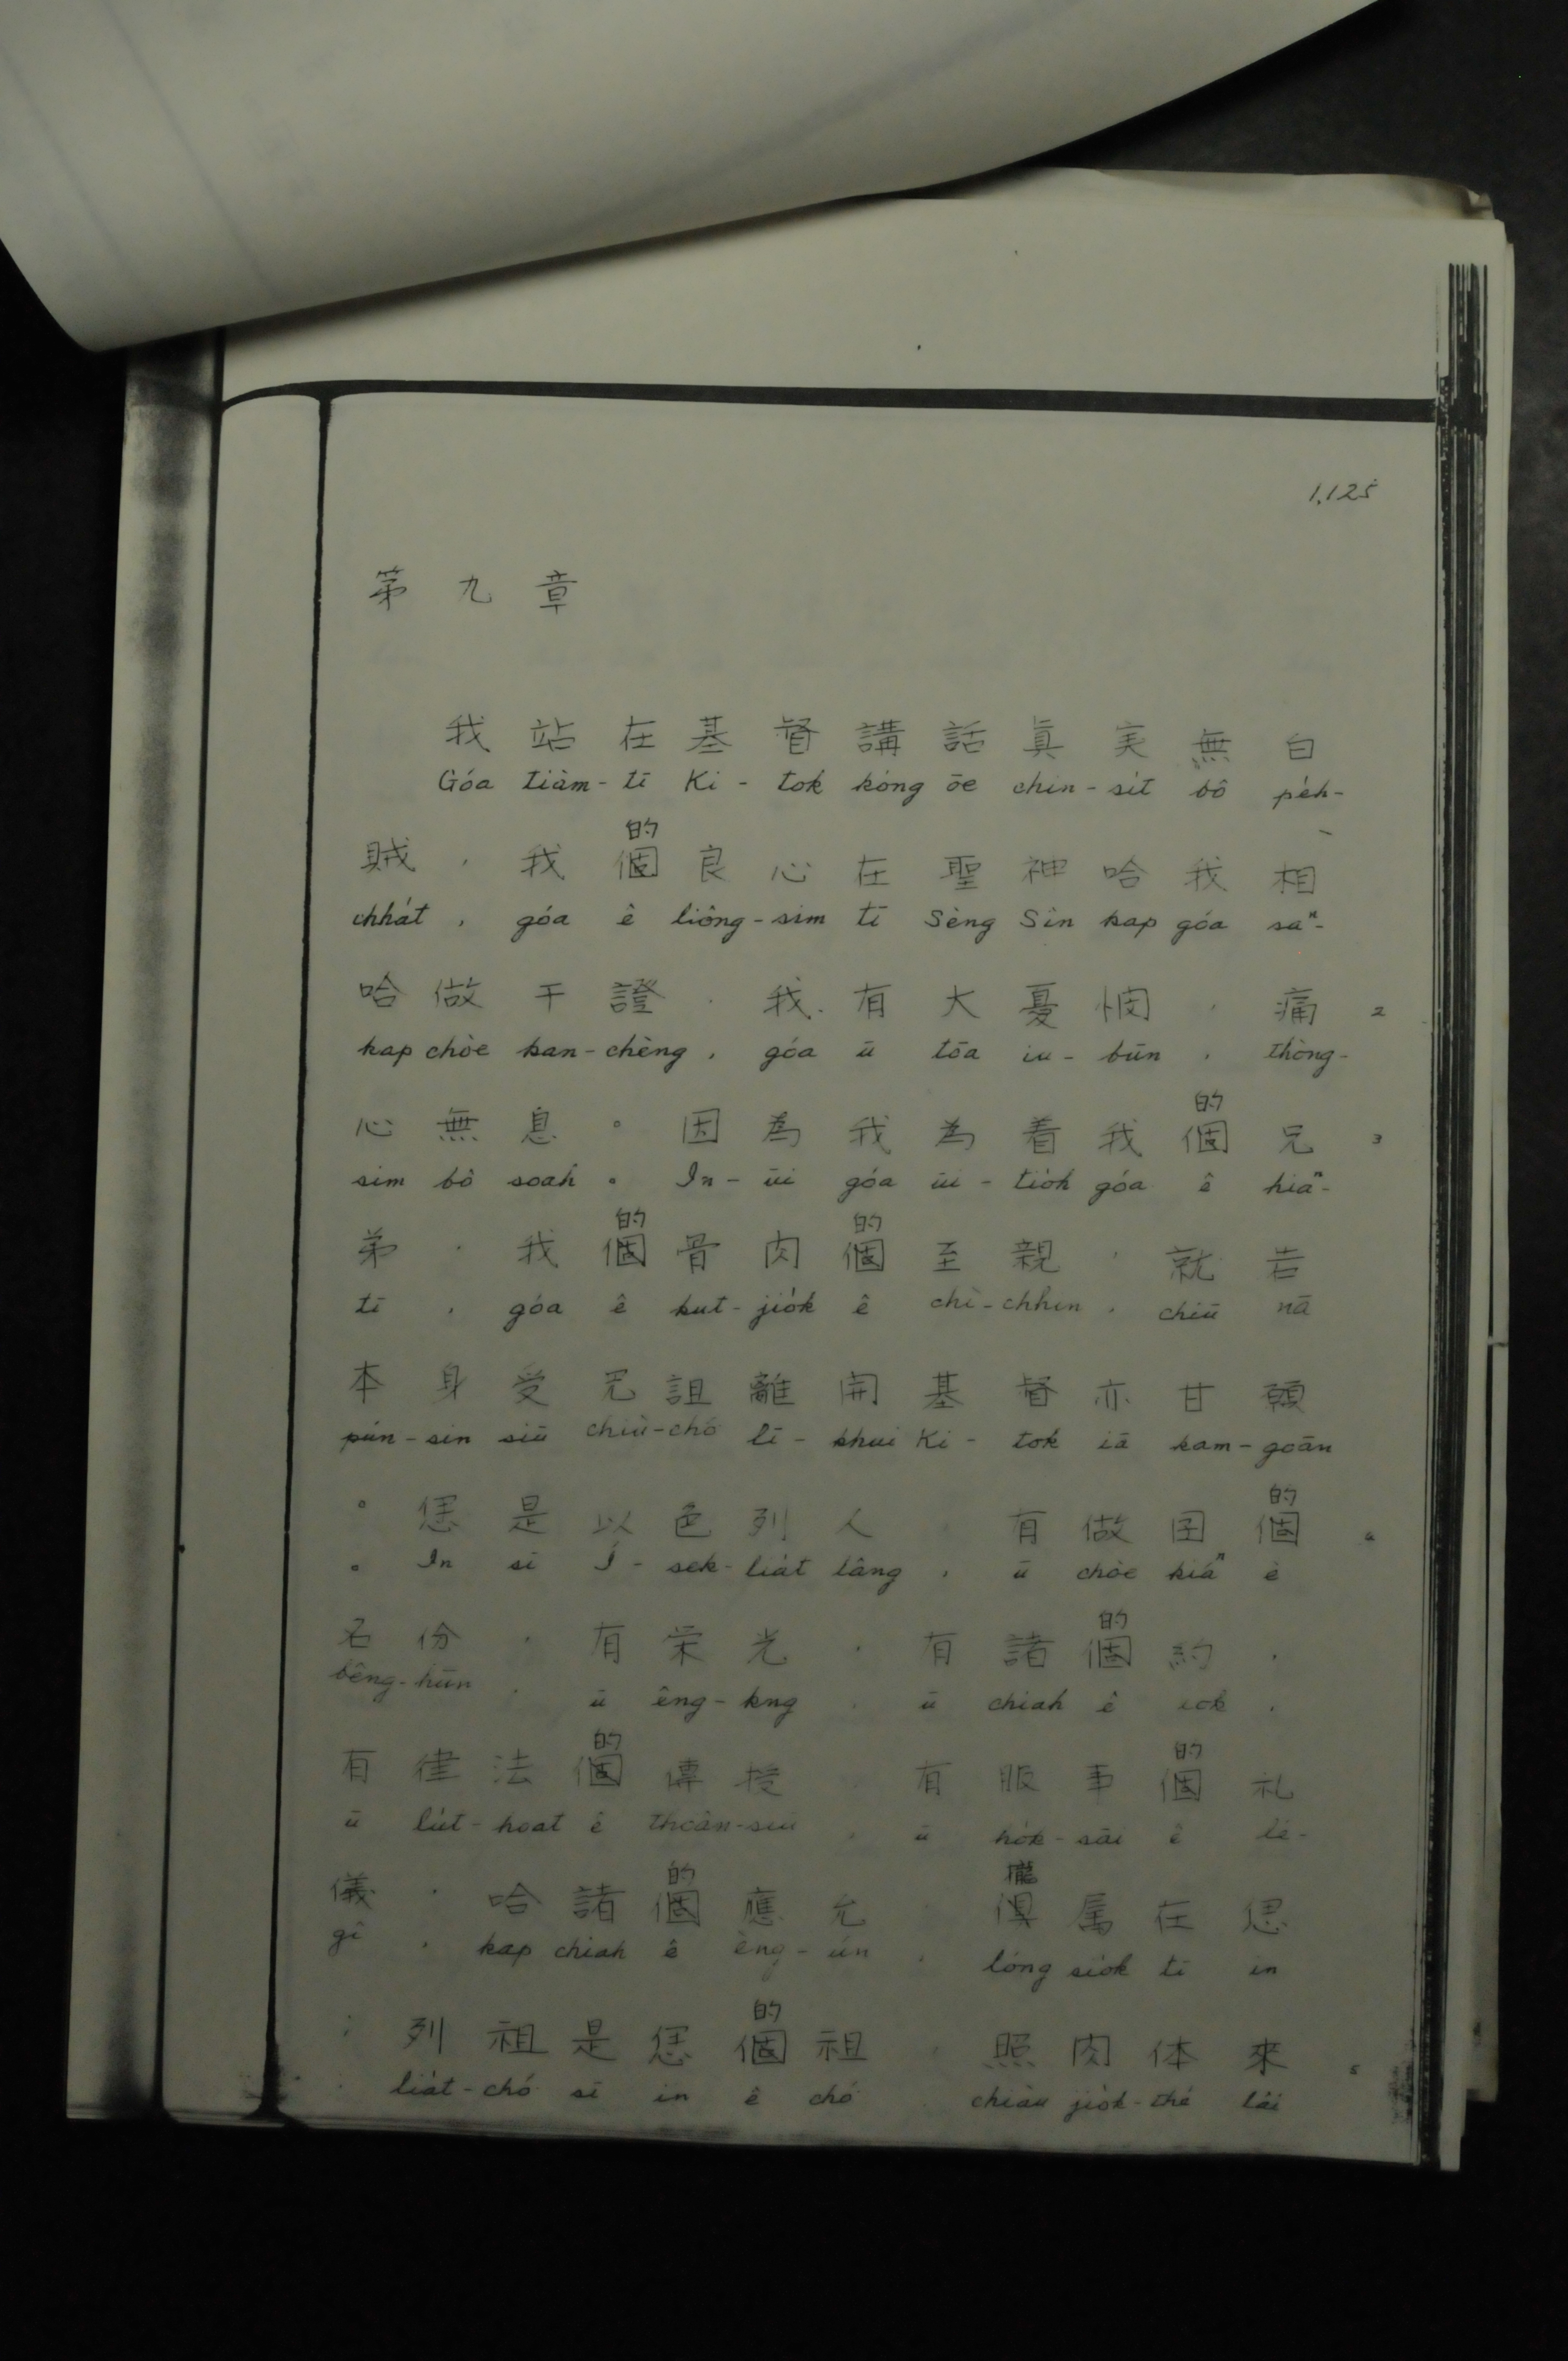 1,125
第九章
我站在基督講話眞实無白
Góa tiàm-tī Ki-tok kóng ōe chin-si̍t bô pe̍h-
的
賊，我個良心在聖神哈我相
chha̍t, góa ê liông-sim tī Sèng Sîn kap góa saⁿ-
哈做干證，我有大憂悯，痛 2
kap chòe kan-chèng, góa ū tōa iu-būn, thòng-
的
心無息。因為我為着我個兄 3
sim bô soah。In-ūi góa ūi-tio̍h góa ê hiaⁿ-
的 的
弟，我個骨肉個至親，就若
tī, góa ê kut-jio̍k ê chì-chhin, chiū nā
本身受咒詛離開基督亦甘願
pún-sin siū chiù-chó lī-khui Ki-tok iā kam-goān
的
。恁是以色列人，有做囝個 4
。In sī Í-sek-lia̍t lâng, ū chòe kiáⁿ ê
的
名份，有栄光，有諸個約，
bêng-hūn, ū êng-kng, ū chiah ê iok,
的 的
有律法個傳授，有服事個礼
ū lu̍t-hoat ê thoân-siū, ū ho̍k-sāi ê lé-
的 攏
儀，哈諸個應允，俱属在恁
gî, kap chiah ê èng-ún, lóng sio̍k tī in
的
；列祖是恁個祖，照肉体來 5
; lia̍t-chó sī in ê chó, chiàu jio̍k-thé lâi